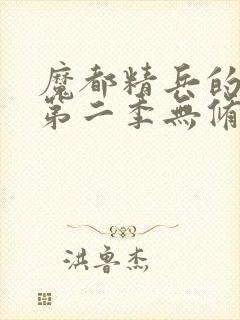 魔都精兵的
第二季無脩
洪魯杰